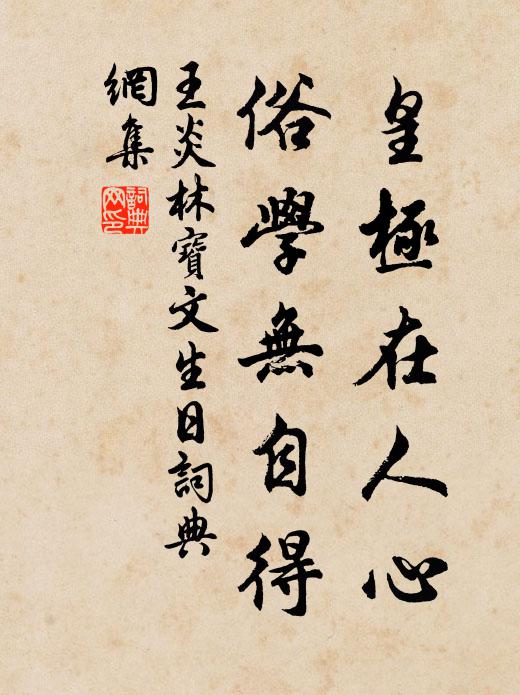 皇極在人心
俗學無自得
王炎林寶文生日詞典
網集
詞典
网印